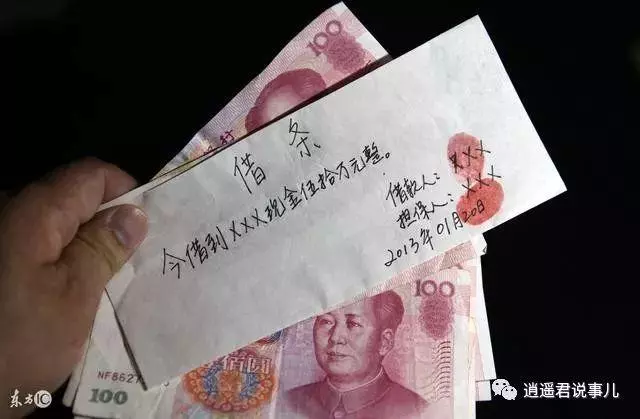 100
借条
今借到XXX现金伍拾万元整。
借款人：XXX
担保人：XXX
2013年01月20日
100
NF8627
100
东方IC
逍遥君说事儿